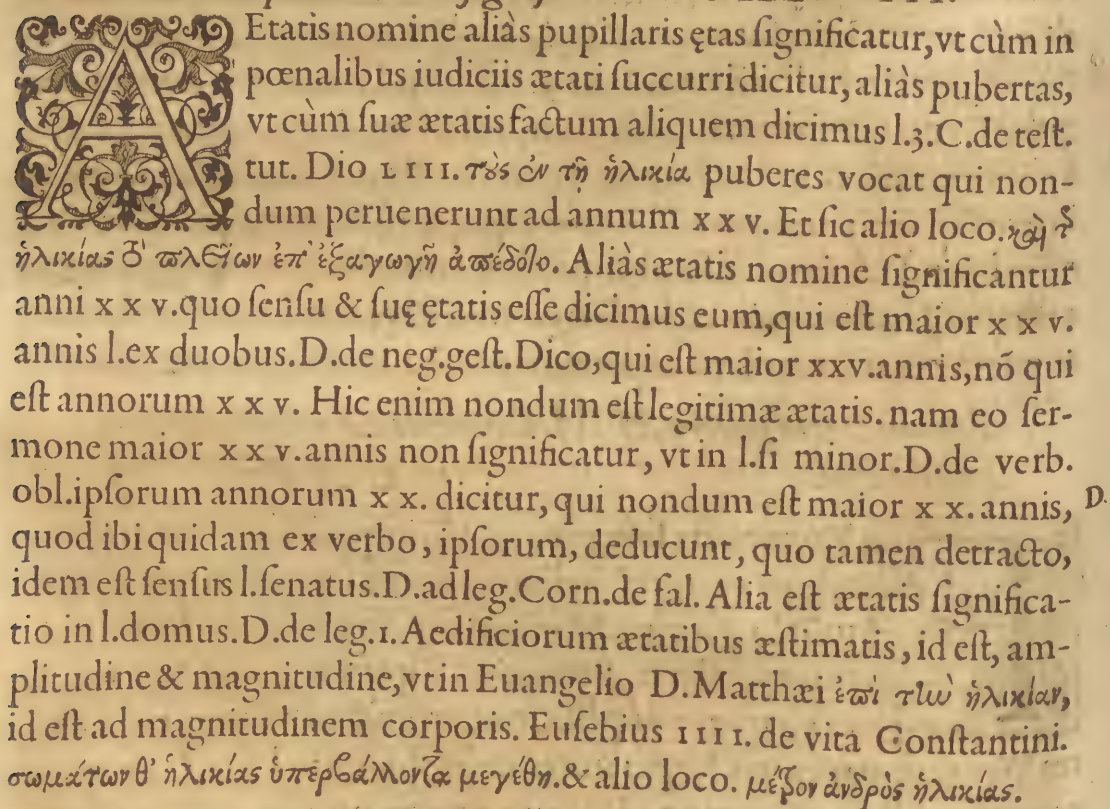 AEtatis nomine aliàs pupillaris ętas ſignificatur, vt cùm in
pœnalibus iudiciis ætati ſuccurri dicitur, aliàs pubertas,
vt cùm ſuæ ætatis factum aliquem dicimus l.3.C.de teſt.
tut. Dio LIII. τοὺς ἐν τῇ ἡλικίᾳ puberes vocat qui non-
dum peruenerunt ad annum xxv. Et ſic alio loco. καὶ τῆς
ἡλικίας οἱ πλείων ἐπ' ἐξαγωγῇ ἀπέδοτο. Aliàs ætatis nomine ſignificantur
anni xxv. quo ſenſu & ſuę ętatis eſſe dicimus eum, qui eſt maior xxv.
annis l.ex duobus.D.de neg.geſt.Dico, qui eſt maior xxv.annis, nõ qui
eſt annorum xxv. Hic enim nondum eſt legitimæ ætatis. nam eo ſer-
mone maior xxv.annis non ſignificatur, vt in l.ſi minor.D.de verb.
obl.ipſorum annorum xx. dicitur, qui nondum eſt maior xx. annis, D.
quod ibi quidam ex verbo, ipſorum, deducunt, quo tamen detracto,
idem eſt ſenſus l.ſenatus.D.ad leg.Corn.de fal. Alia eſt ætatis ſignifica-
tio in l.domus.D.de leg.1. Aedificiorum ætatibus æſtimatis, id eſt, am-
plitudine & magnitudine, vt in Euangelio D.Matthæi ἐπὶ τὴν ἡλικίαν,
id eſt ad magnitudinem corporis. Euſebius IIII. de vita Conſtantini.
σωμάτων θ' ἡλικίας ὑπερβάλλοντα μεγέθη. & alio loco. μεῖζον ἀνδρὸς ἡλικίας.